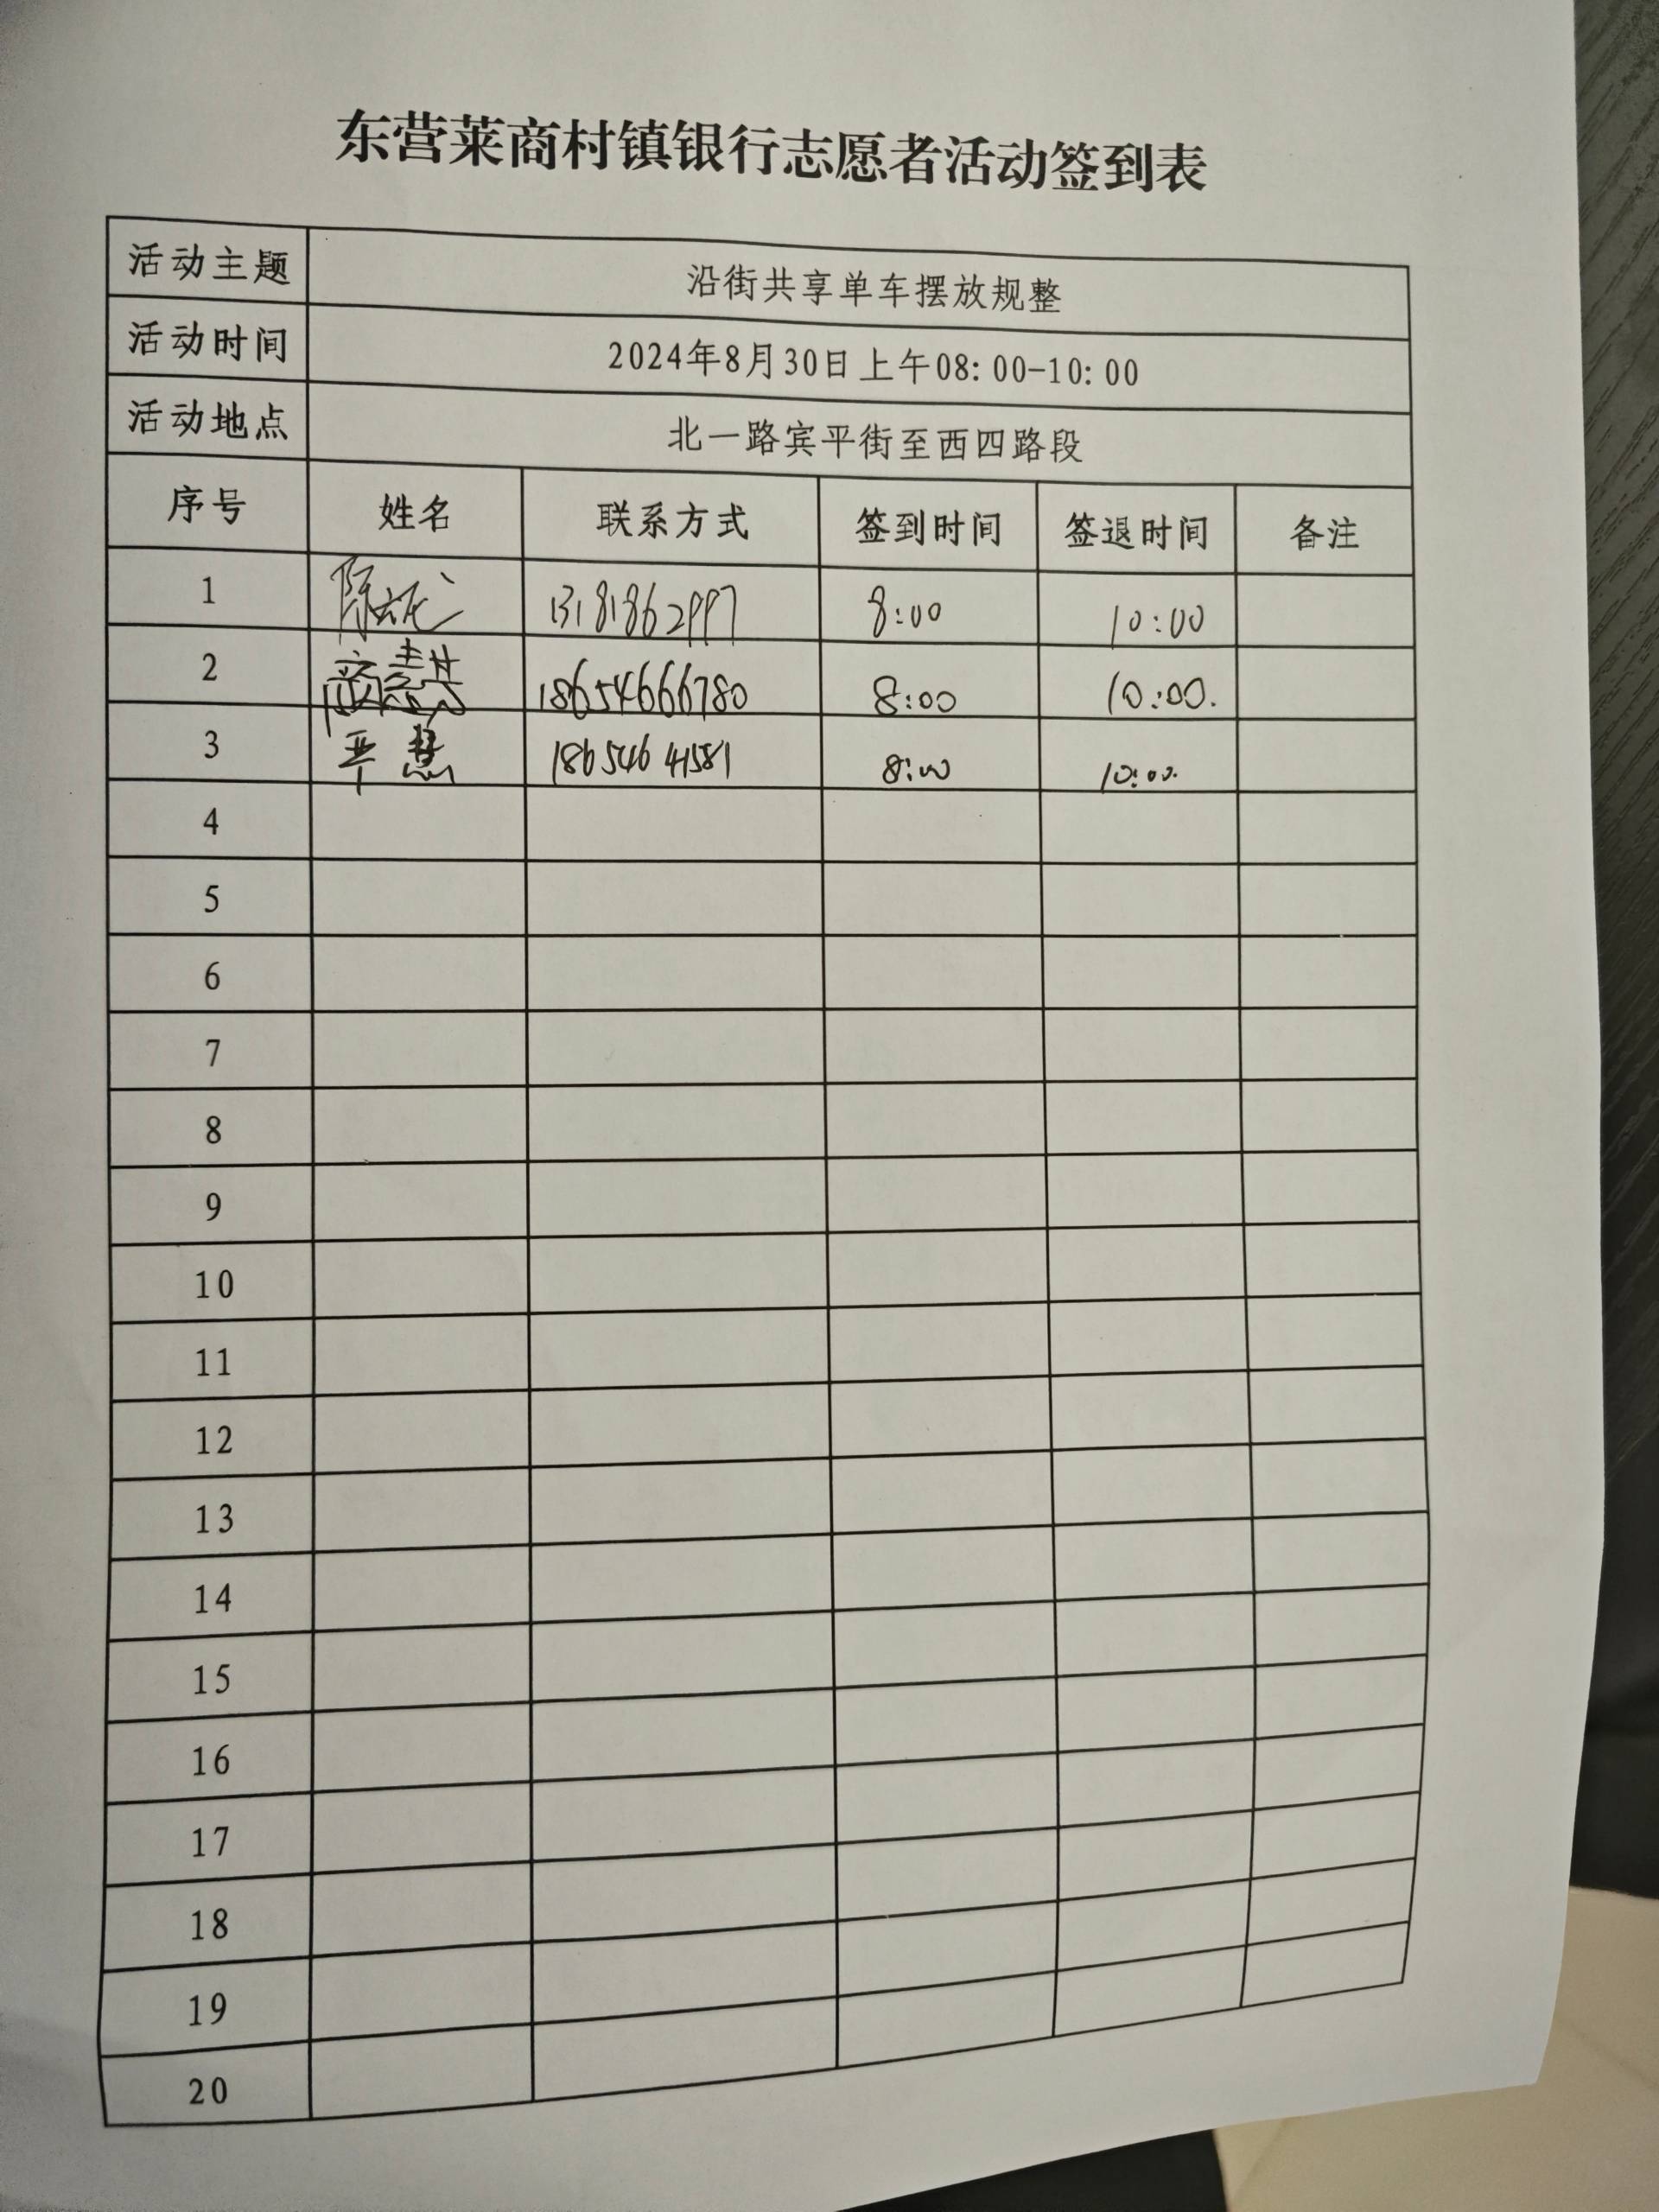 东营莱商村镇银行志愿者活动签到表
活动主题 沿街共享单车摆放规整
活动时间 2024年8月30日上午08:00-10:00
活动地点 北一路宾平街至西四路段
序号 姓名 联系方式 签到时间 签退时间 备注
1 陈 13181862997 8:00 10:00
2 18654666780 8:00 10:00.
3 18654641581 8:00 10:00.
4
5
6
7
8
9
10
11
12
13
14
15
16
17
18
19
20